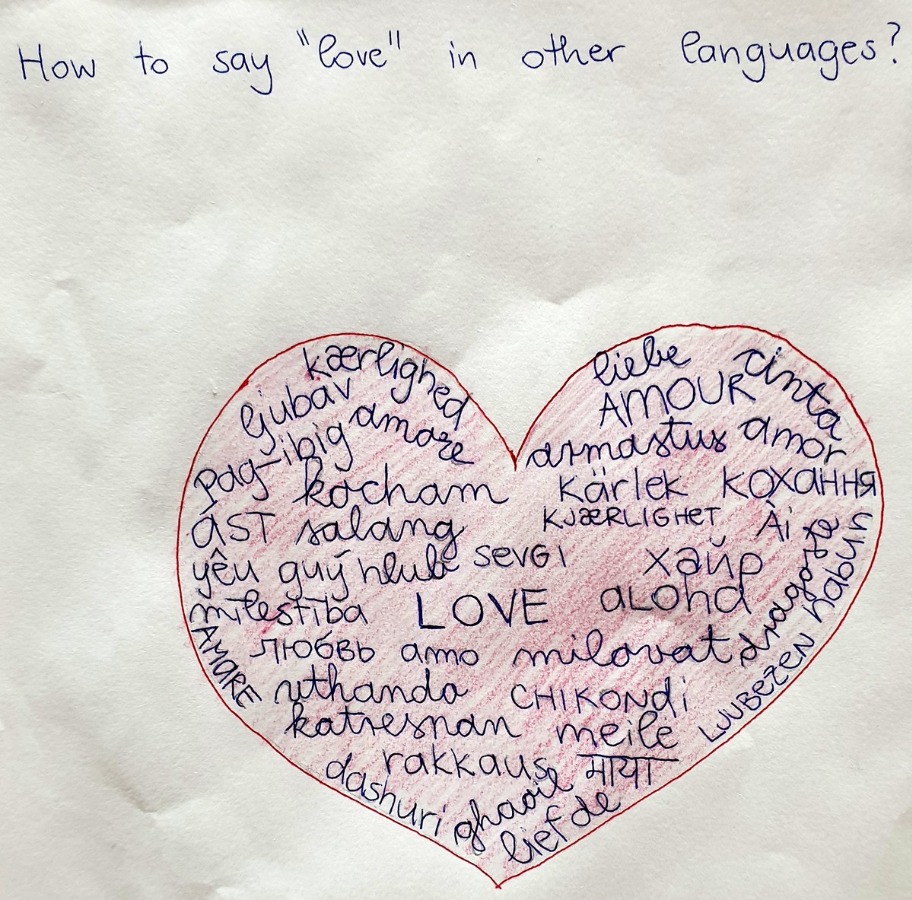 How to say "love" in other languages?
kærlighed liebe cinta
ljubav amore AMOUR
Pag-ibig armastus amor
kocham Kärlek кохання
ÁST salang KJÆRLIGHET Ài
yêu quý hlub SEVGI хайр
mīlestība LOVE aLOha dragoste
AMARE любовь amo milovat
uthanda CHIKONDi LJUBEZEN
katresnan meilė
rakkaus माया
dashuri ghaoil
liefde